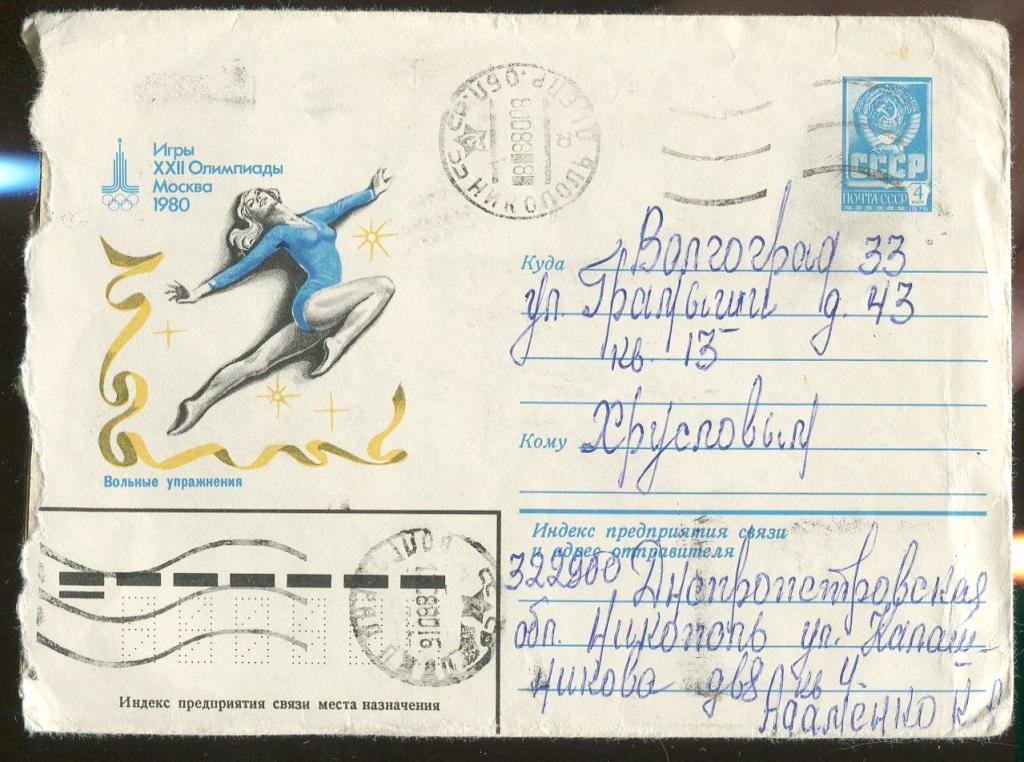 Игры
XXII Олимпиады
Москва
1980
Вольные упражнения
НИКОПОЛЬ
СССР
ПОЧТА СССР 4 коп
1978
Куда Волгоград 33
ул. д. 43
кв. 13
Кому Хрусловым
Индекс предприятия связи
и адрес отправителя
322900 Днепропетровская
обл. Никополь ул. Калаш-
никова кв 4
Адаменко
Индекс предприятия связи места назначения